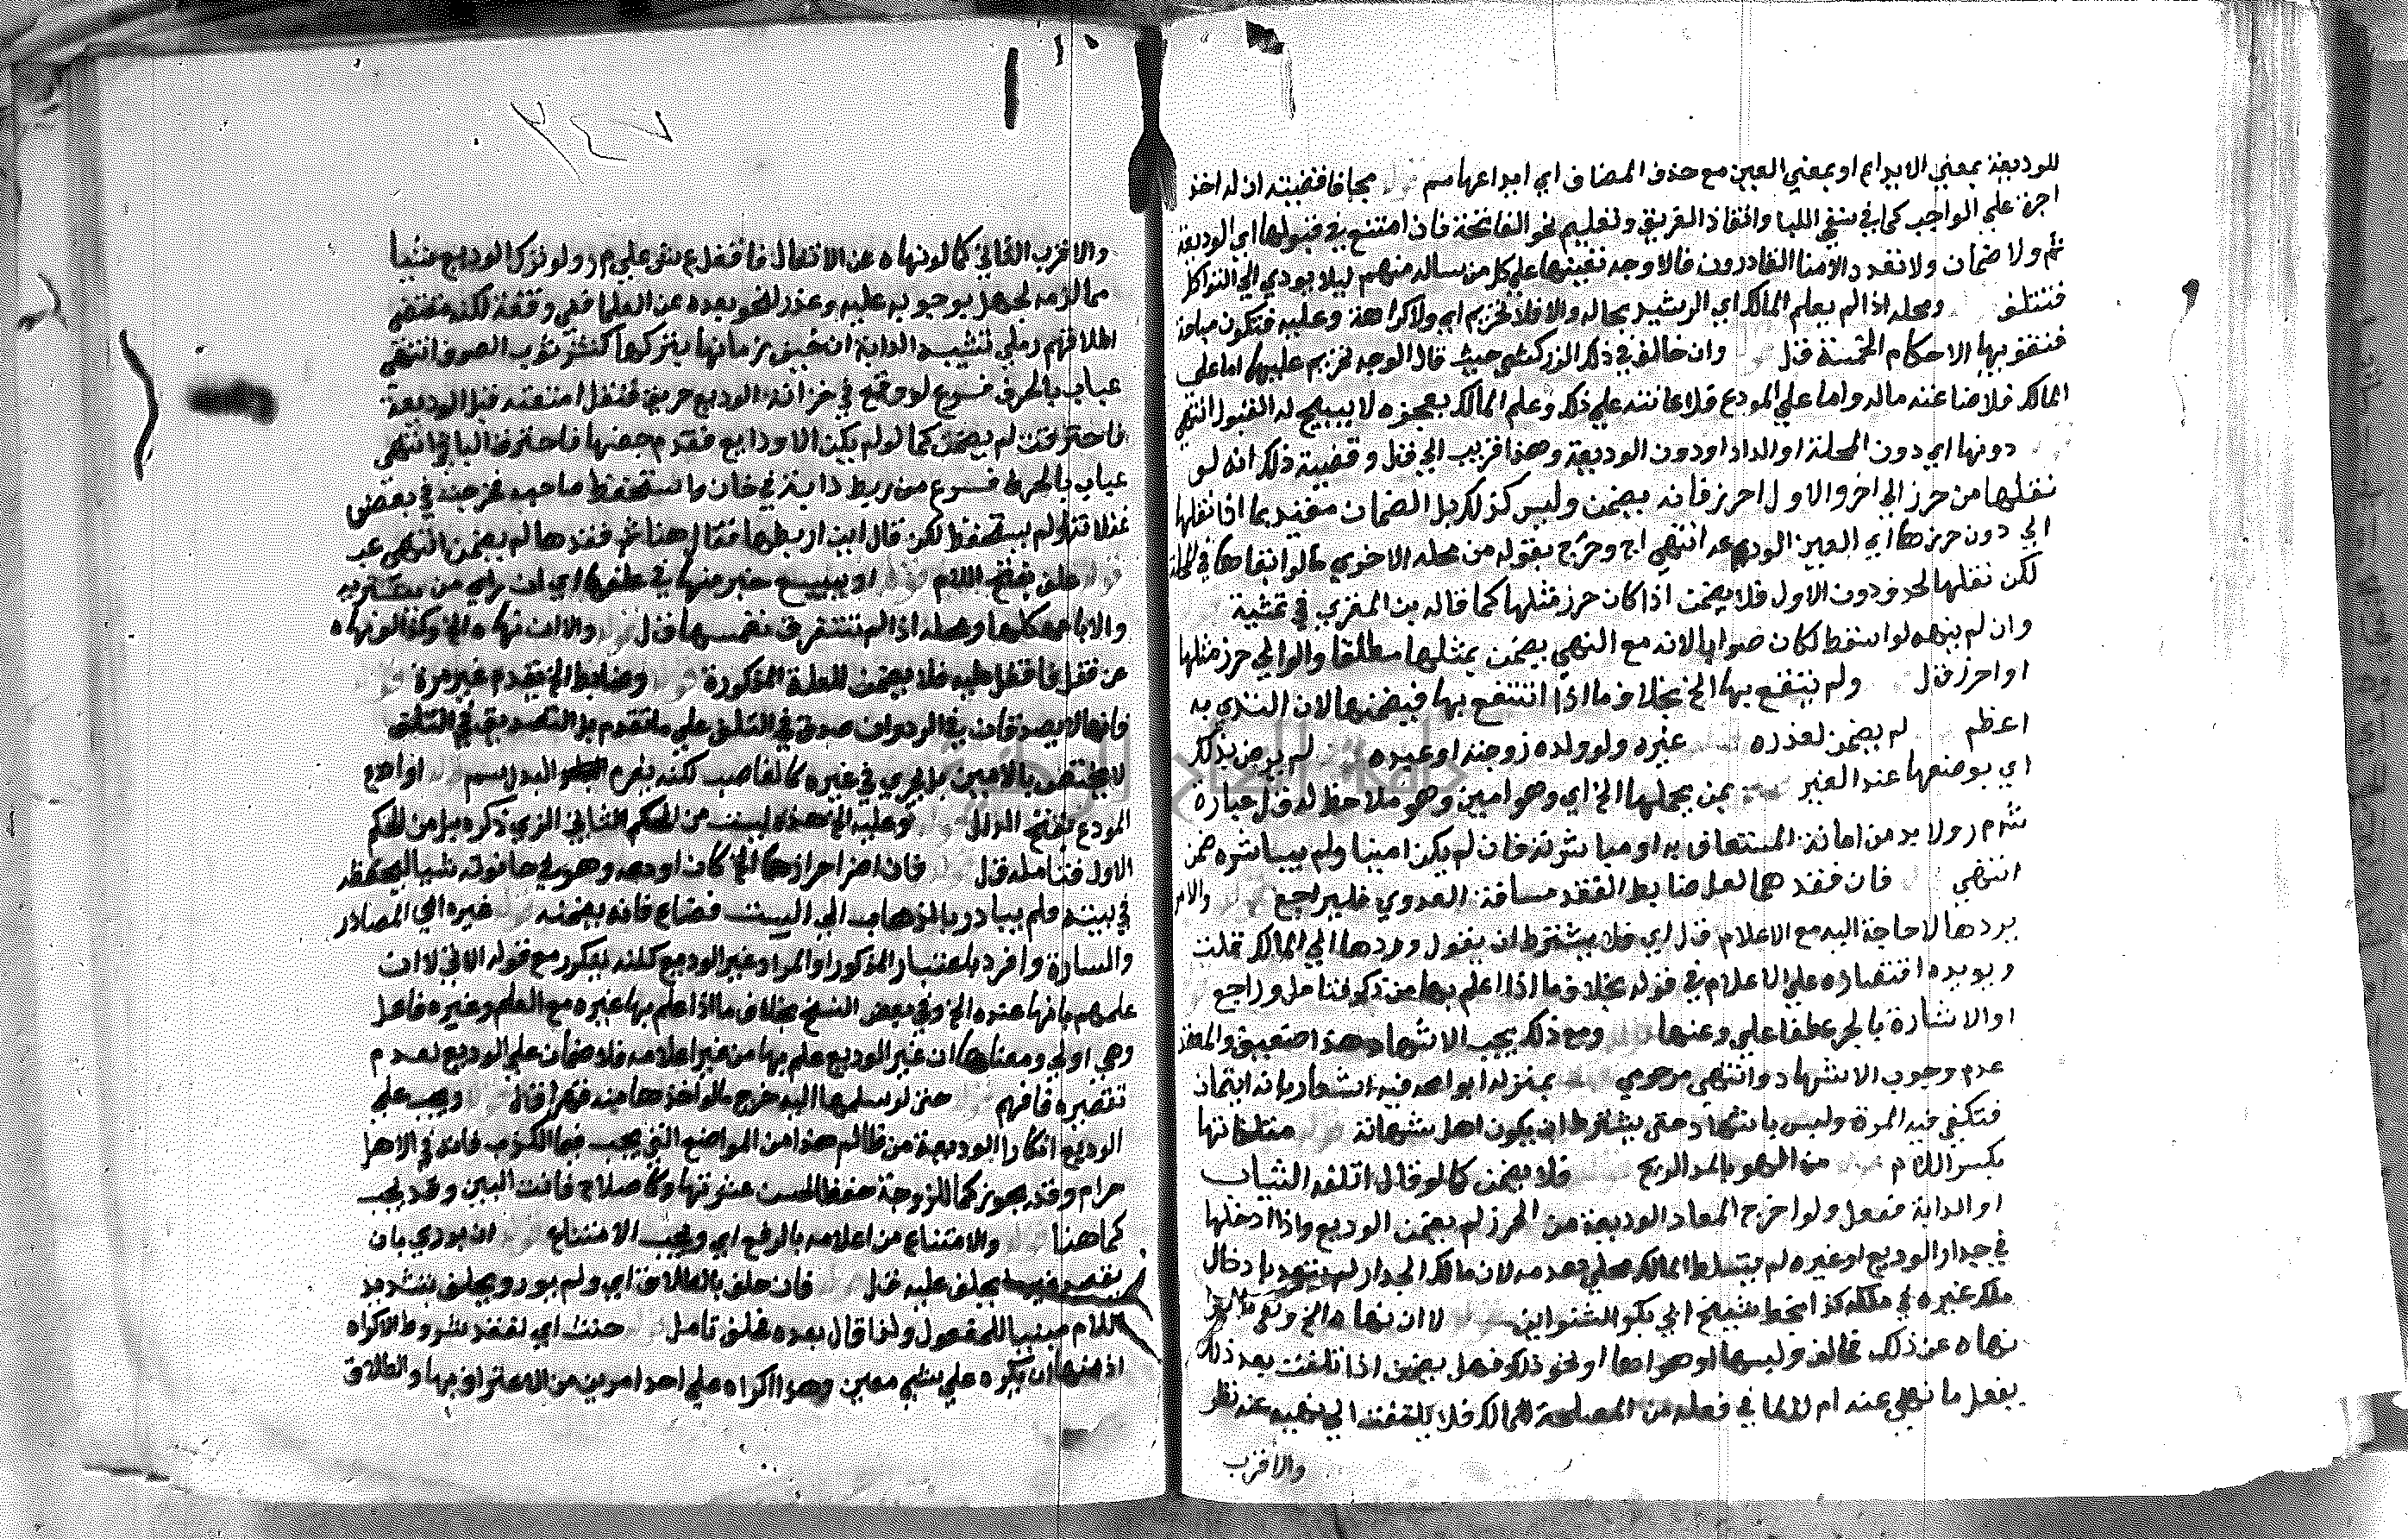 للوديعة بمعني الايداع او بمعني العين مع حذف المضاف اي ايداعها سم مجانا فقضيته ان له اخذ
اجرة علي الواجب كما في سقي اللبا وانقاذ الغريق وتعليم نحو الفاتحة فان امتنع في قبولها اي الوديعة
ثم ولا ضمان ولا تعدد الامنا القادرون فالاوجه تعينها علي كل من ساله منهم ليلا يودي الي التواكل
فتتلف ومحله اذا لم يعلم المالك اي الرشيد بحاله والا فلا تحريم اي ولا كراهة وعليه فتكون مباحة
فتعتريها الاحكام الخمسة قل وان خالف في ذلك الزركشي حيث قال الوجه تحريم عليهما اما علي
المالك فلاضاعته ماله واما علي المودع فلاعانته علي ذلك وعلم المالك بعجزه لا يبيح له القبول انتهي
دونها اي دون المحلة او الدار او دون الوديعة وهذا قريب الي قل وقضية ذلك انه لو
نقلها من حرز الي اخر والاول احرز فانه يضمن وليس كذلك بل الضمان مقيد بما اذا نقلها
الي دون حرزها اي العين المودعة انتهي اج وخرج بقوله من محلة الاخري ما لو اتفاقا في المحلة
لكن نقلها لحرز دون الاول فلا يضمن اذا كان حرز مثلها كما قاله بن المقري في تمشية
وان لم ينهه لو اسقط لكان صوابا لانه مع النهي يضمن بمثلها مطلقا والوالي حرز مثلها
او احرز قل ولم ينتفع بها الخ بخلاف ما اذا انتفع بها فيضمنها لان التعدي به
اعظم لم يضمن لعذره غيره ولو ولده زوجته او عبده لم يرض بذلك
اي بوضعها عند الغير بمن يحملها الخ اي وهو امين وهو ملاحظ له قل عبارة
شرم ر ولا بد من امانة المستعان به او مباشرته فان لم يكن امينا ولم يباشره ضمن
انتهي فان فقدهما لعل ضابط الفقد مسافة العدوي فليراجع والامر
بردها لا حاجة اليه مع الاعلام قل اي فلا يشترط ان يقول وردها الي المالك قلت
ويويده اقتصاره علي الاعلام في قوله بخلاف ما اذا اعلم بها من ذكر فتامل وراجع
او الاشارة بالجر عطفا علي وعنها ومع ذلك يجب الاشهاد هذا ضعيف والمعتمد
عدم وجوب الاشهاد وانتهي مرحومي بمنزلة ايداعه فيه اشعار بانه ايتمان
فتكفي فيه المرة وليس باشهاد حتي يشترط ان يكون اهل شهادة متلفاتها
بكسر اللام من الهو بالمد الريح فلا يضمن كما لو قال اتلف الثياب
او الدابة ففعل ولو اخرج المعاد الوديعة من الحرز لم يضمن الوديع واذا ادخلها
في جدار الوديع او غيره لم يتسلط المالك علي هدمه لان مالك الجدار لم يتعد بادخال
ملك غيره في ملكه كذا بخط شيخ ابي بكر الشنواني لا ان نهاه الخ
نهاه عن ذلك فخالف ولبسها لو هوامها او نحو ذلك فهل يضمن اذا تلفت بعد ذلك
يفعل ما نهي عنه ام لا لما في فعله من المصلحة للمالك فلا يلتفت الي نهيه عنه نظر
والاقرب
٢٤٧
والاقرب الثاني كما لو نهاه عن الاقفال فاقفل ع ش علي م ر ولو ترك الوديع شيأ
مما لزمه لجهل بوجوبه عليه وعذر لنحو بعده عن العلما ففي وقفة لكنه مقتضي
اطلاقهم رملي تشبيه الدابة ان خيف زمانتها بتركها كنشر ثوب الصوف انتهي
عباب بالحرف فرع لو وقع في خزانة الوديع حريق فنقل امتعته قبل الوديعة
فاحترقت لم يضمن كما لو لم يكن الا ودايع فقدم بعضها فاحترق الباقي انتهي
عباب بالحرف فرع من ربط دابة في خان واستحفظ صاحبه فخرجت في بعض
غفلاته ولم يستحفظ لكن قال اين اربطها فقال هنا ثم فقدها لم يضمن انتهي عب
علف بفتح اللام او يبيع جزء منها في علفها اي ان راي من يشتريه
والا باعها كلها ومحله اذا لم تستغرق نفسها قل والا ان نهاه الخ وكذا لو نهاه
عن قفل فاقفل عليه فلا يضمن للعلة المذكورة وضابط الخ تقدم غير مرة
فانها لا يصدقان في الرد وان صدق في التلف علي ما تقدم بل التصديق في التلف
لا يختص بالامين بل يجري في غيره كالغاصب لكنه يغرم البدل سم اواضع
المودع بفتح الدال وعليه الخ هذه ليست من الحكم الثاني الذي ذكره بل من الحكم
الاول فتامله قل فان اخر احرازها الخ كان اودعه وهو في حانوته شيا ليحفظه
في بيته ولم يبادر بالذهاب الي البيت فضاع فانه يضمنه غيره اي المصادر
والسارق وافرد باعتبار المذكور او المراد غير الوديع كلنه يتكرر مع قوله الاتي لا ان
علمهم بانها عنده الخ وفي بعض النسخ بخلاف ما اذا علم بها غيره مع العلم وغيره فاعل
وهي اولي ومعناها ان غير الوديع علم بها من غير اعلامه فلا ضمان علي الوديع لعدم
تقصيره فافهم حتي لو سلمها اليه خرج ما لو اخذها منه قهرا قل ويجب علي
الوديع انكار الوديعة من ظالم هذا من المواضع التي يجب فيها الكذب فانه في الاصل
حرام وقد يجوز كما للزوجة حفظا لحسن عشرتها وكاصلاح ذات البين وقد يجب
كما هنا والامتناع من اعلامه بالرفع اي ويجب الامتناع ان يوري بان
يقصد يحلف عليه قل فان حلف بالطلاق اي ولم يور ويحلف بتشديد
اللام مبنيا للمفعول ولذا قال بعده فحلف تامل حنث اي لفقد شروط الاكراه
اذ منها ان يكره علي شي معين وهذا اكراه علي احد امرين من الاعتراف بها والطلاق